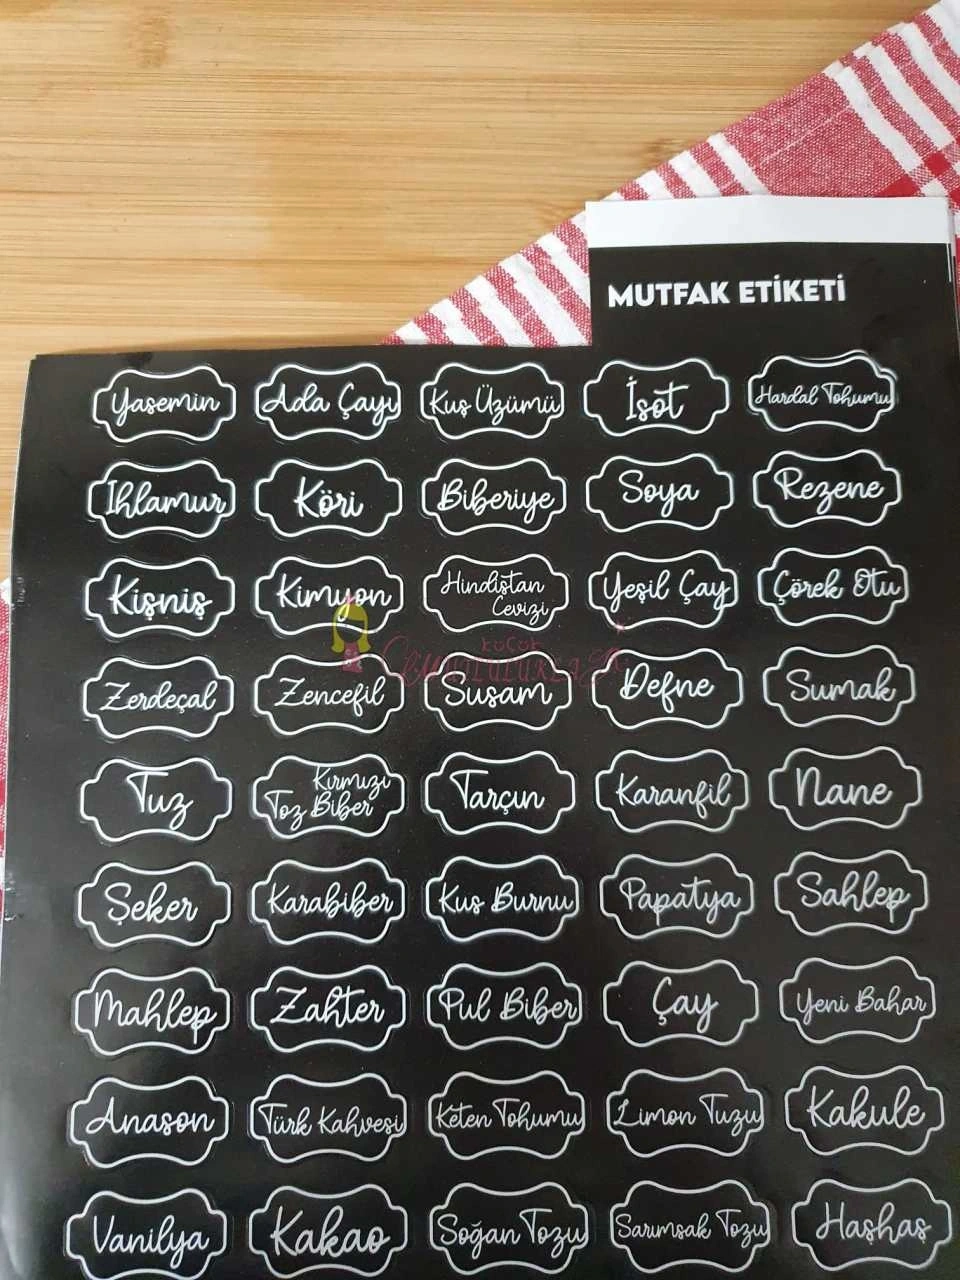 MUTFAK ETİKETİ
Yasemin
Ada Çayı
Kuş Üzümü
İsot
Hardal Tohumu
Ihlamur
Köri
Biberiye
Soya
Rezene
Kişniş
Kimyon
Hindistan
Cevizi
Yeşil Çay
Çörek Otu
küçük
Zerdeçal
Zencefil
Susam
Defne
Sumak
Tuz
Kırmızı
Toz Biber
Tarçın
Karanfil
Nane
Şeker
Karabiber
Kuş Burnu
Papatya
Sahlep
Mahlep
Zahter
Pul Biber
Çay
Yeni Bahar
Anason
Türk Kahvesi
Keten Tohumu
Limon Tuzu
Kakule
Vanilya
Kakao
Soğan Tozu
Sarımsak Tozu
Haşhaş